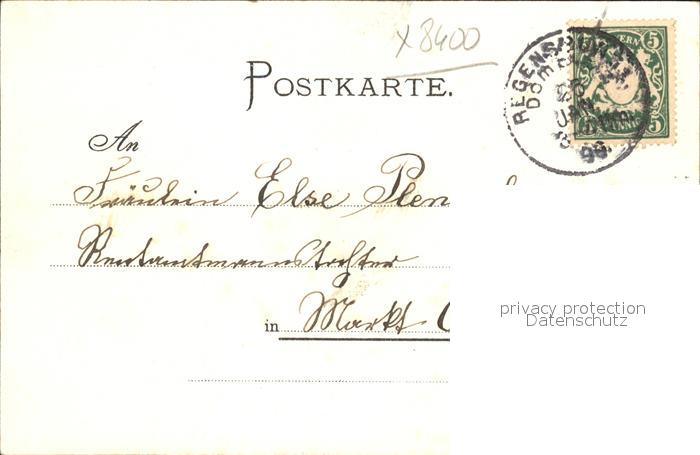 x 8400
POSTKARTE.
REGENSBURG
5 5
An
Fräulein Else Plen
Rentamtmannstochter
in Markt
privacy protection
Datenschutz